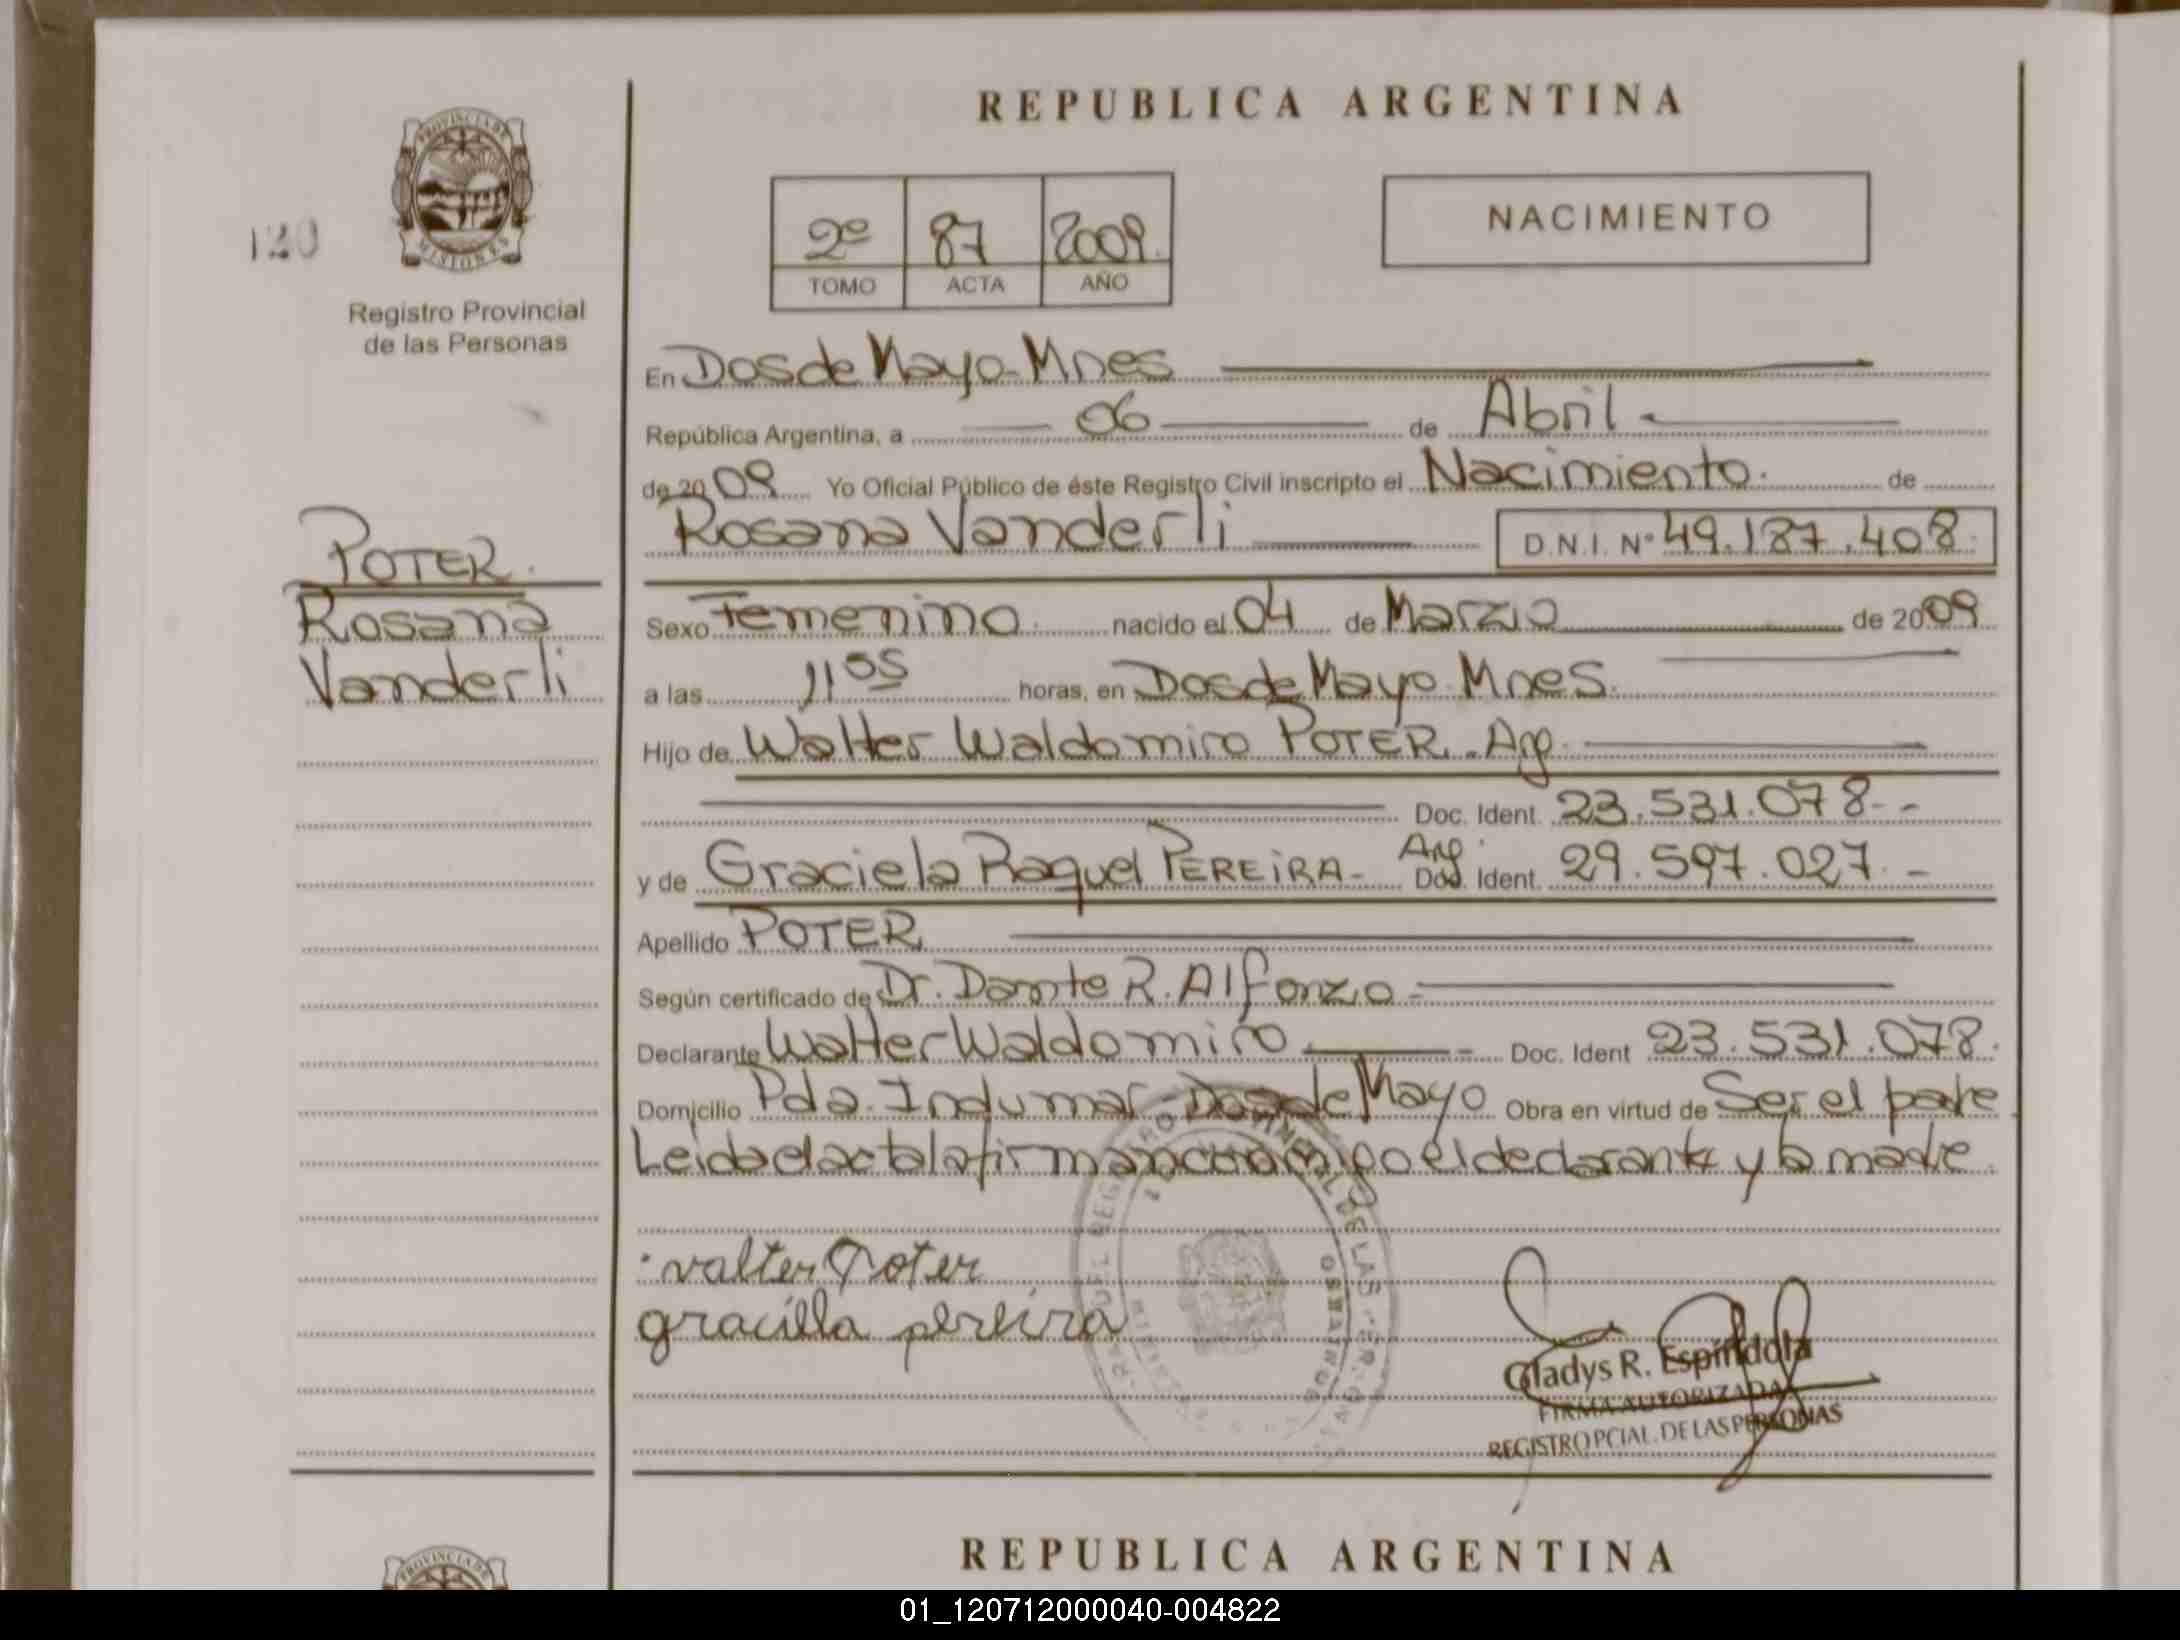 REPUBLICA ARGENTINA
PROVINCIA DE
MISIONES
120
Registro Provincial
de las Personas
2º 87 2009
TOMO ACTA AÑO
NACIMIENTO
POTER
Rosana
Vanderli
En Dos de Mayo-Mnes
República Argentina, a 06 de Abril
de 2009 Yo Oficial Público de éste Registro Civil inscripto el Nacimiento. de
Rosana Vanderli D.N.I. Nº 49.187.408
Sexo Femenino nacido el 04 de Marzo de 2009
a las 11 05 horas, en Dos de Mayo-Mnes.
Hijo de Walter Waldomiro POTER. Arg.
Doc. Ident. 23.531.078-
y de Graciela Raquel PEREIRA- Arg. Doc. Ident. 29.597.027.-
Apellido POTER
Según certificado de Dr. Dante R. Alfonzo-
Declarante Walter Waldomiro Doc. Ident 23.531.078.
Domicilio Pda. Indumar-Dos de Mayo Obra en virtud de Ser el padre
Leida el acta la firman conmigo el declarante y la madre.
valter Poter
gracilla pereira
Gladys R. Espíndola
FIRMA AUTORIZADA
REGISTRO PCIAL. DE LAS PERSONAS
REPUBLICA ARGENTINA
PROVINCIA DE
01_120712000040-004822